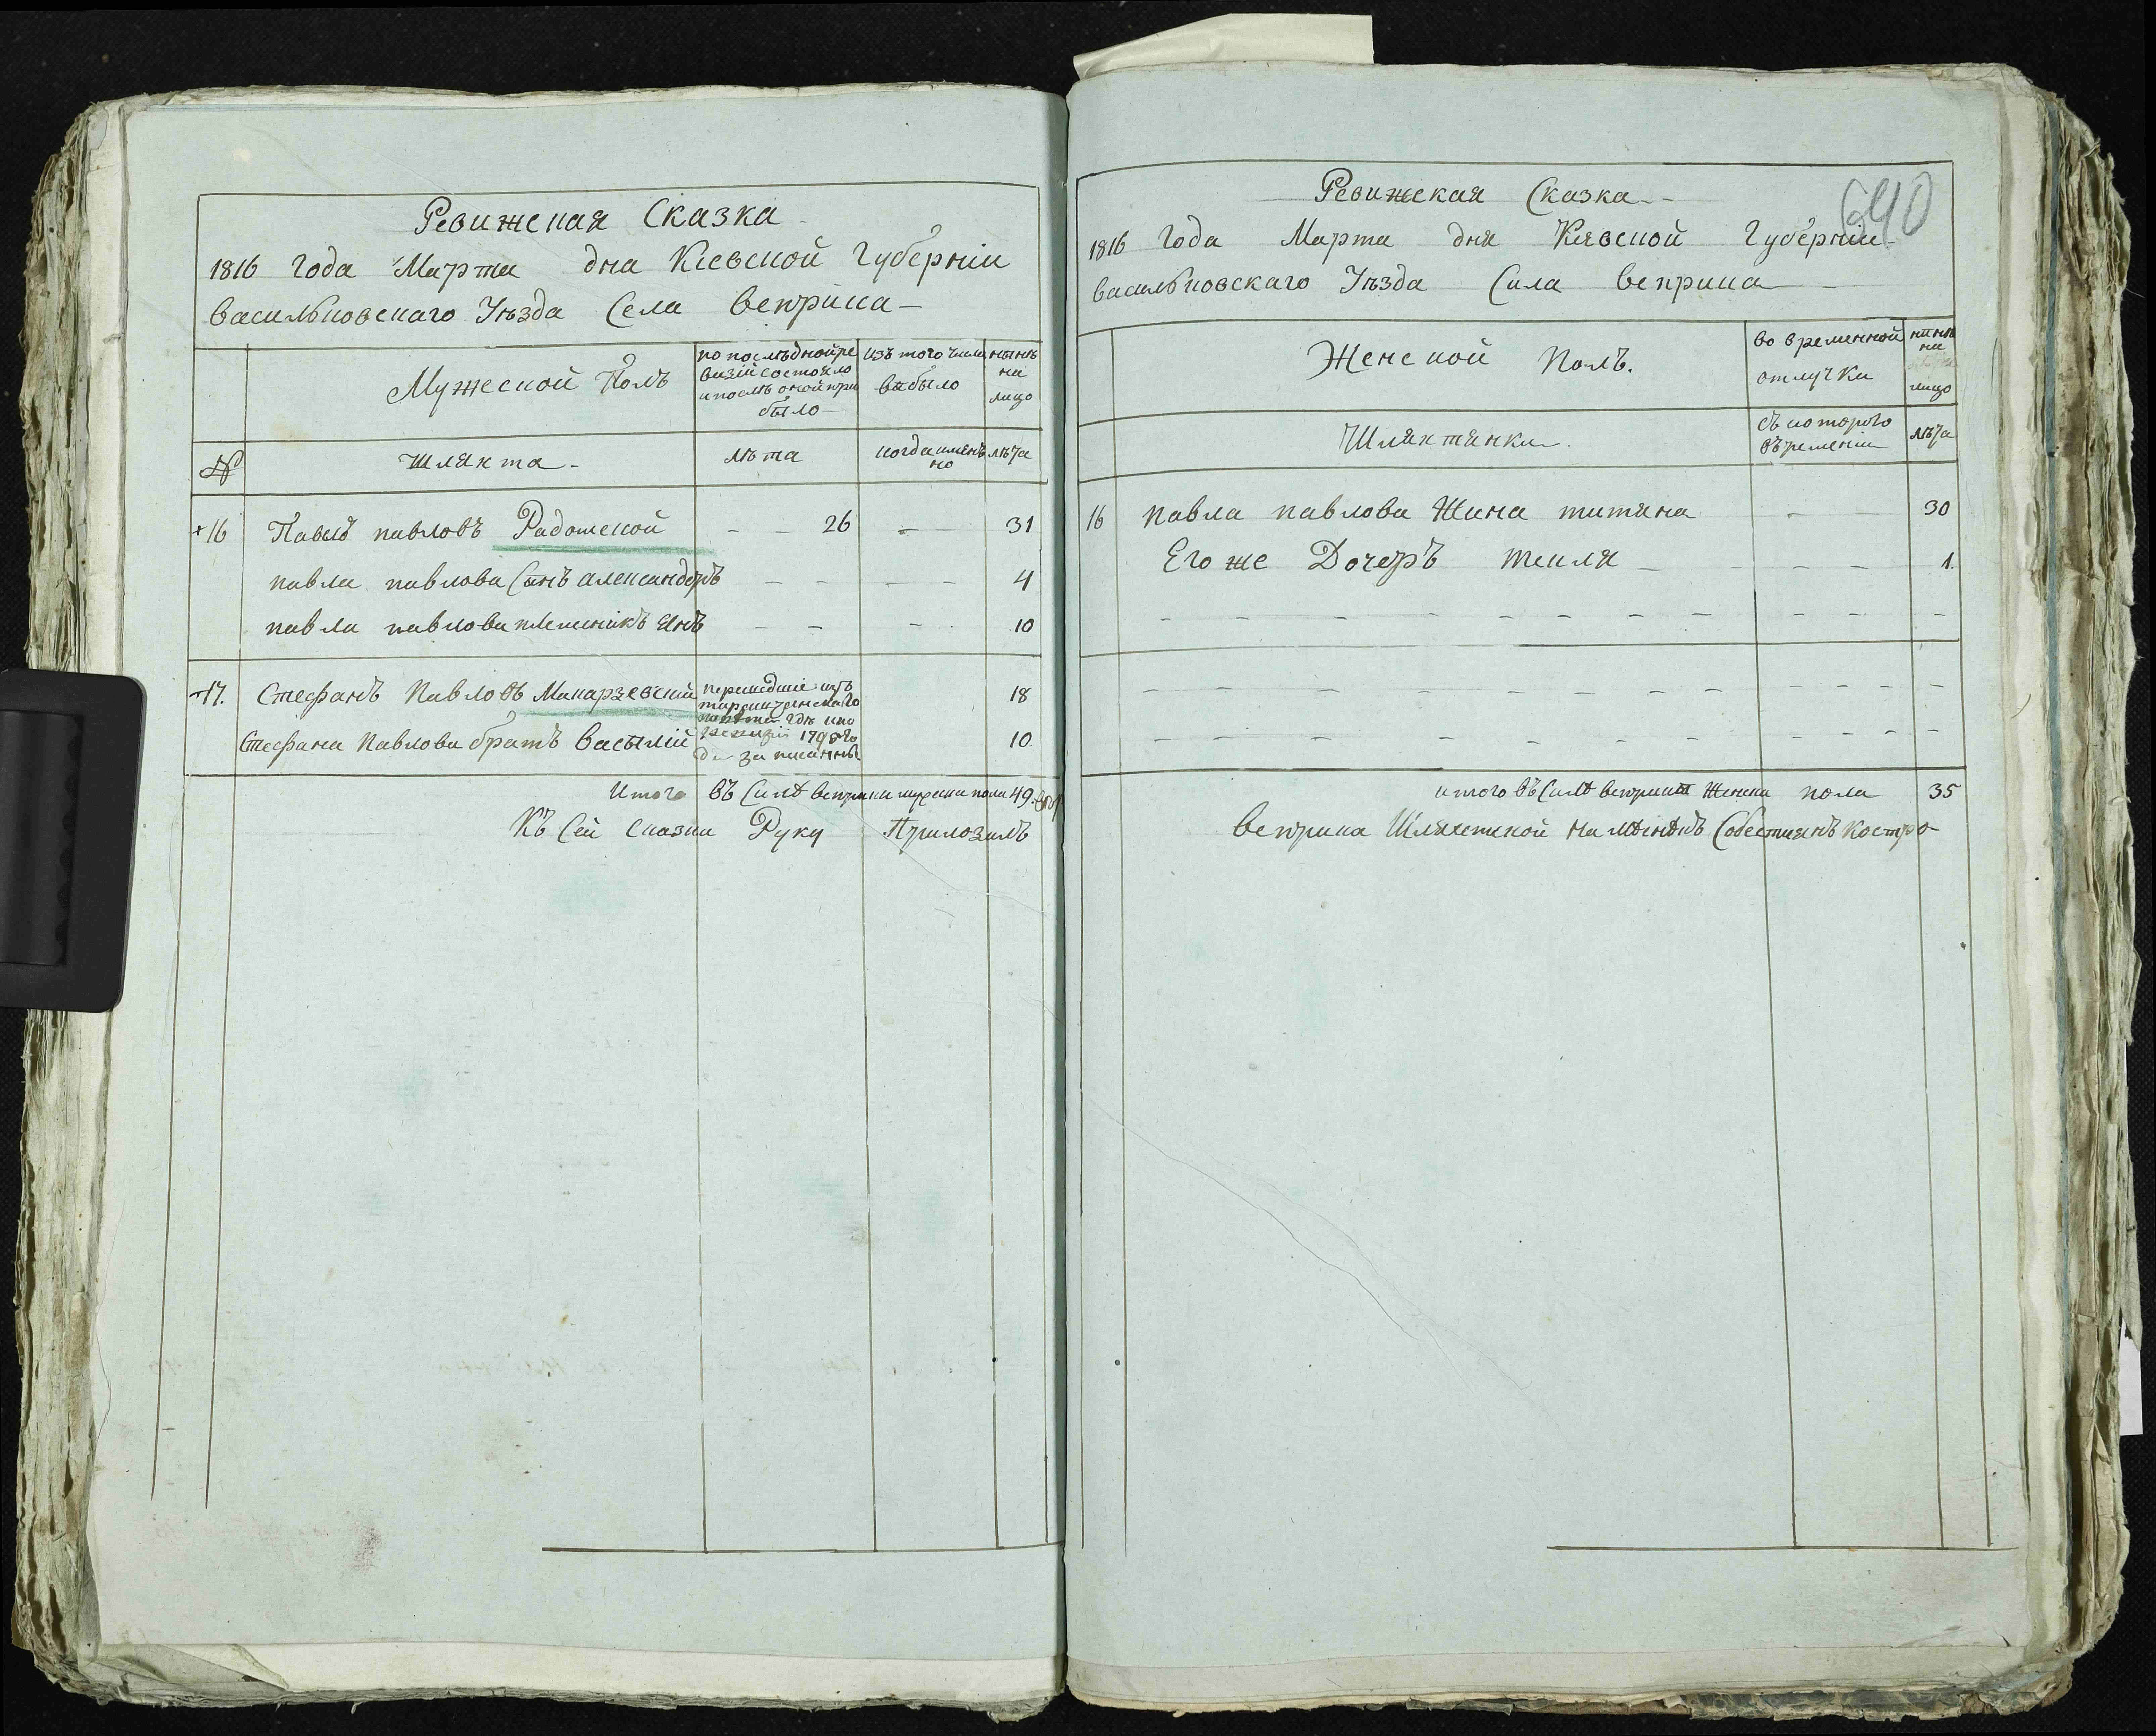 Ревижская Сказка
1816 года Марта дня Киевской Губернии
васильковскаго Уезда Села веприка
Мужеской Полъ
по последной ре
визии состояло
и после оной при
было
изъ того числа
выбыло
ныне
на
лицо
№
Шляхта
лета
когда имен
но
лета
16 Павелъ павловъ Радомской 26 31
павла павлова Сынъ александеръ 4
павла павлова племеникъ Янъ 10
17. Стефанъ Павловъ Макаржевский 18
перешедшие изъ
1795 го
да записанны
Стефана Павлова братъ василий 10
Итого въ Селе веприка мужска пола 49.
Къ Сей Сказки Руку Приложилъ
640
Ревижская Сказка
1816 Года Марта дня Киевской Губернии
васильковскаго Уезда Села веприка
Женской Полъ.
во временной
отлучки
ныне
на
лицо
Шляхтянки.
съ которого
времени
лета
16 павла павлова Жина титяна 30
Его же Дочеръ текля 1.
итого въ Селе веприка Женска пола 35
веприка Шляхетской Собестиянъ Костро